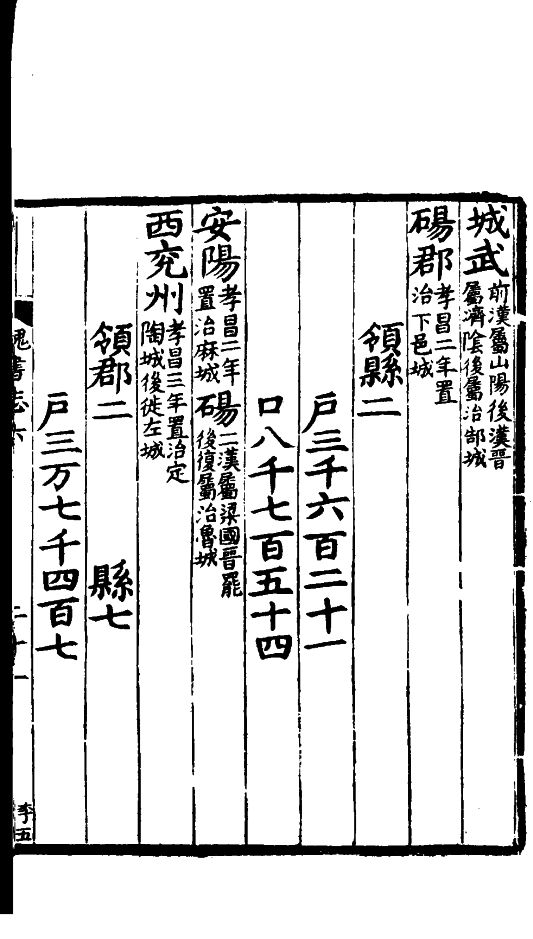 城武前漢屬山陽後漢晉屬濟陰後屬治郜城
碭郡孝昌二年置治下邑城
領縣二
戸三千六百二十一
口八千七百五十四
安陽孝昌二年置治麻城 碭二漢屬梁國晉罷後復屬治魯城
西兖州孝昌三年置治定陶城後徙左城
領郡二 縣七
戸三万七千四百七
魏書志六 二十一 李五